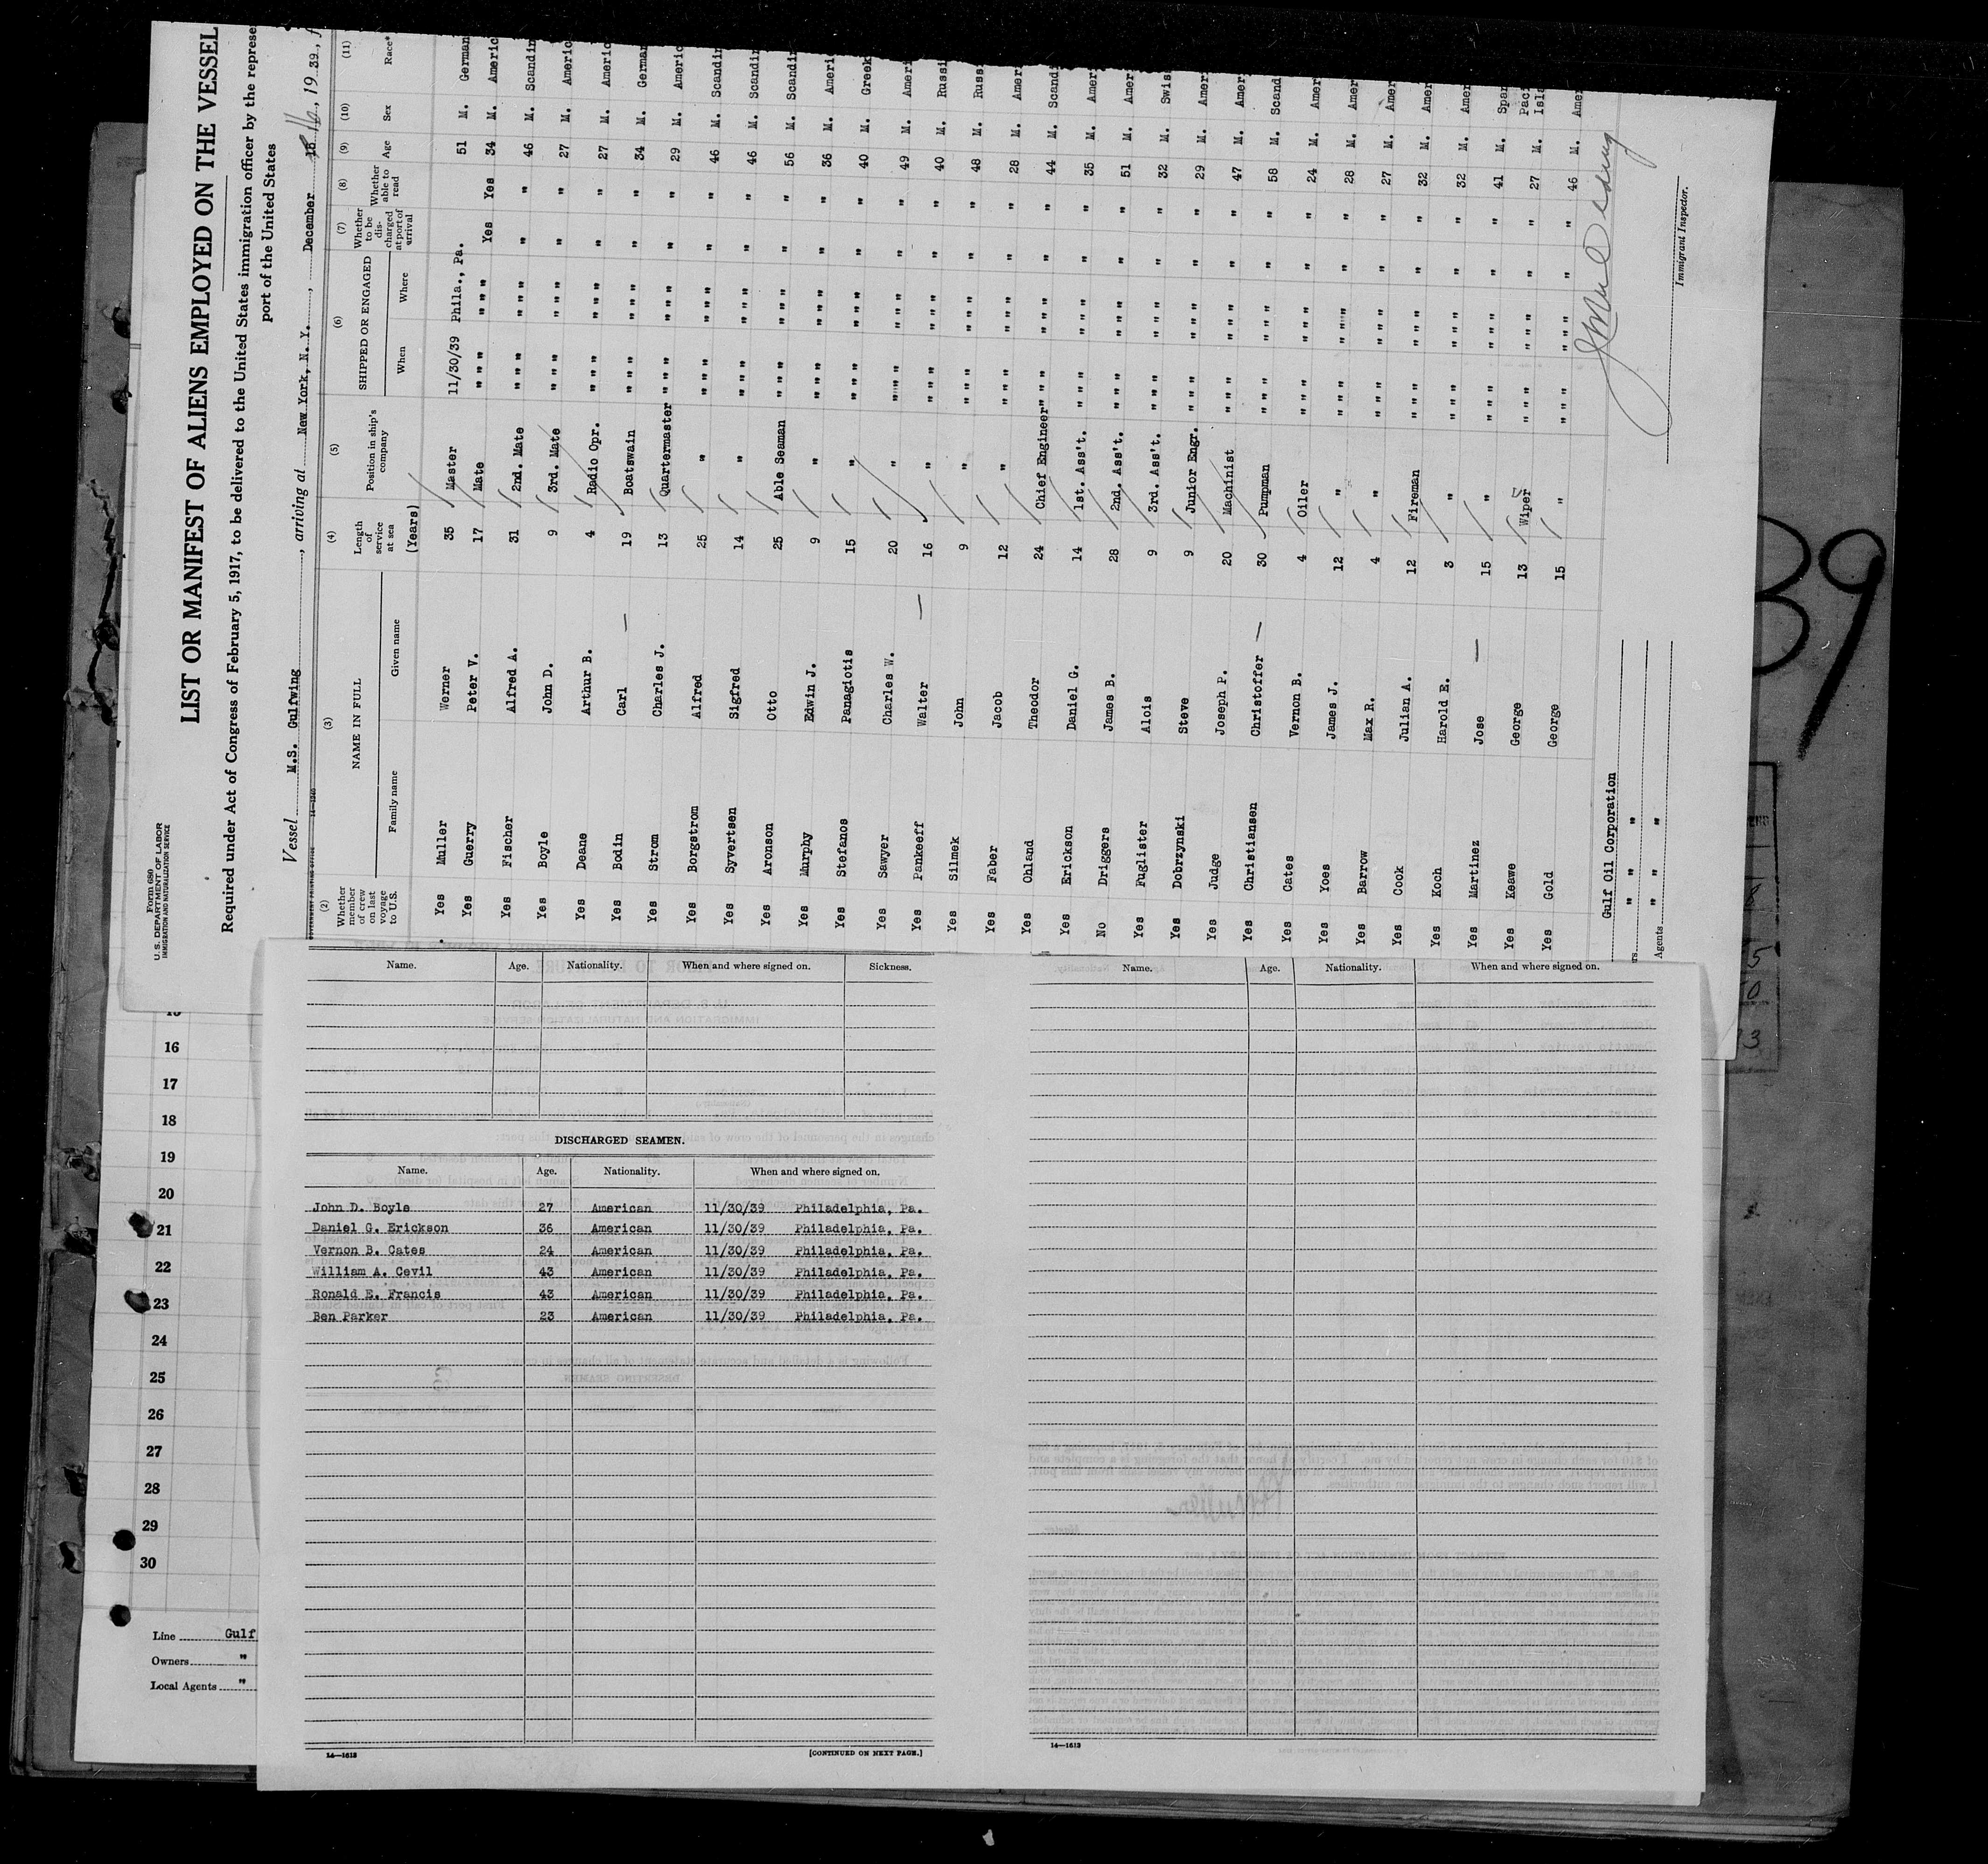 Form 680
U. S. DEPARTMENT OF LABOR
IMMIGRATION AND NATURALIZATION SERVICE
LIST OR MANIFEST OF ALIENS EMPLOYED ON THE VESSEL
Required under Act of Congress of February 5, 1917, to be delivered to the United States immigration officer by the represe
port of the United States
Vessel M.S. Gulfwing , arriving at New York, N. Y. , December 16, 19 39, f
(2) (3) (4) (5) (6) (7) (8) (9) (10) (11)
Whether member of crew on last voyage to U.S. NAME IN FULL Length of service at sea Position in ship's company SHIPPED OR ENGAGED Whether to be discharged at port of arrival Whether able to read Age Sex Race*
Family name Given name (Years) When Where
Yes Muller Werner 35 Master 11/30/39 Phila., Pa. 51 M. German
Yes Guerry Peter V. 17 Mate " " " " " " Yes Yes 34 M. Americ
Yes Fischer Alfred A. 31 2nd. Mate " " " " " " " " 46 M. Scandin
Yes Boyle John D. 9 3rd. Mate " " " " " " " " 27 M. Americ
Yes Deane Arthur B. 4 Radio Opr. " " " " " " " " 27 M. Americ
Yes Bodin Carl — 19 Boatswain " " " " " " " " 34 M. German
Yes Strom Charles J. 13 Quartermaster " " " " " " " " 29 M. Americ
Yes Borgstrom Alfred 25 " " " " " " " " " 46 M. Scandin
Yes Syvertsen Sigfred 14 " " " " " " " " " 46 M. Scandin
Yes Aronson Otto 25 Able Seaman " " " " " " " " 56 M. Scandin
Yes Murphy Edwin J. 9 " " " " " " " " " 36 M. Ameri
Yes Stefanos Panagiotis 15 " " " " " " " " " 40 M. Greek
Yes Sawyer Charles W. 20 " " " " " " " " " 49 M. Ameri
Yes Pankeeff Walter — 16 " " " " " " " " " 40 M. Russi
Yes Silmek John 9 " " " " " " " " " 48 M. Russ
Yes Faber Jacob 12 " " " " " " " " " 28 M. Amer
Yes Ohland Theodor 24 Chief Engineer " " " " " " " " 44 M. Scandi
Yes Erickson Daniel G. 14 1st. Ass't. " " " " " " " " 35 M. Amer
No Driggers James B. 28 2nd. Ass't. " " " " " " " " 51 M. Amer
Yes Fuglister Alois 9 3rd. Ass't. " " " " " " " " 32 M. Swis
Yes Dobrzynski Steve 9 Junior Engr. " " " " " " " " 29 M. Amer
Yes Judge Joseph P. 20 Machinist " " " " " " " " 47 M. Amer
Yes Christiansen Christoffer — 30 Pumpman " " " " " " " " 58 M. Scand
Yes Cates Vernon B. 4 Oiler " " " " " " " " 24 M. Amer
Yes Yoes James J. 12 " " " " " " " " " 28 M. Amer
Yes Barrow Max R. 4 " " " " " " " " " 27 M. Amer
Yes Cook Julian A. 12 Fireman " " " " " " " " 32 M. Amer
Yes Koch Harold E. 3 " " " " " " " " " 32 M. Amer
Yes Martinez Jose — 15 " " " " " " " " " 41 M. Span
Yes Keawe George 13 Wiper " " " " " " " " 27 M. Paci Isla
Yes Gold George 15 " " " " " " " " " 46 M. Amer
Gulf Oil Corporation
" " "
Agents " " "
Immigrant Inspector.
39
Name. Age. Nationality. When and where signed on. Sickness.
DISCHARGED SEAMEN.
Name. Age. Nationality. When and where signed on.
John D. Boyle 27 American 11/30/39 Philadelphia, Pa.
Daniel G. Erickson 36 American 11/30/39 Philadelphia, Pa.
Vernon B. Cates 24 American 11/30/39 Philadelphia, Pa.
William A. Cevil 43 American 11/30/39 Philadelphia, Pa.
Ronald E. Francis 43 American 11/30/39 Philadelphia, Pa.
Ben Parker 23 American 11/30/39 Philadelphia, Pa.
14—1613 [CONTINUED ON NEXT PAGE.]
Name. Age. Nationality. When and where signed on.
14—1613
16
17
18
19
20
21
22
23
24
25
26
27
28
29
30
Line Gulf
Owners "
Local Agents "